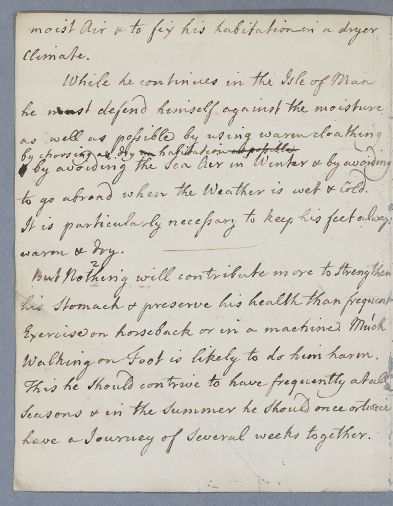 moist Air & to fix his habitation in a dryer
Climate.
While he continues in the Isle of Man
he must defend himself against the moisture
as well as possible by using warm cloathing
by choosing a dry habitation as possible
& by avoiding the Sea Air in Winter & by avoiding
to go abroad when the Weather is wet & Cold.
It is particularly necessary to keep his feet alway
warm & dry.
2
But Nothing will contribute more to Strengthen
his Stomach & preserve his health than frequent
Exercise on horseback or in a machine. Much
Walking on Foot is likely to do him harm.
This he should contrive to have frequently at all
Seasons & in the Summer he should once or twice
have a Journey of Several weeks together.